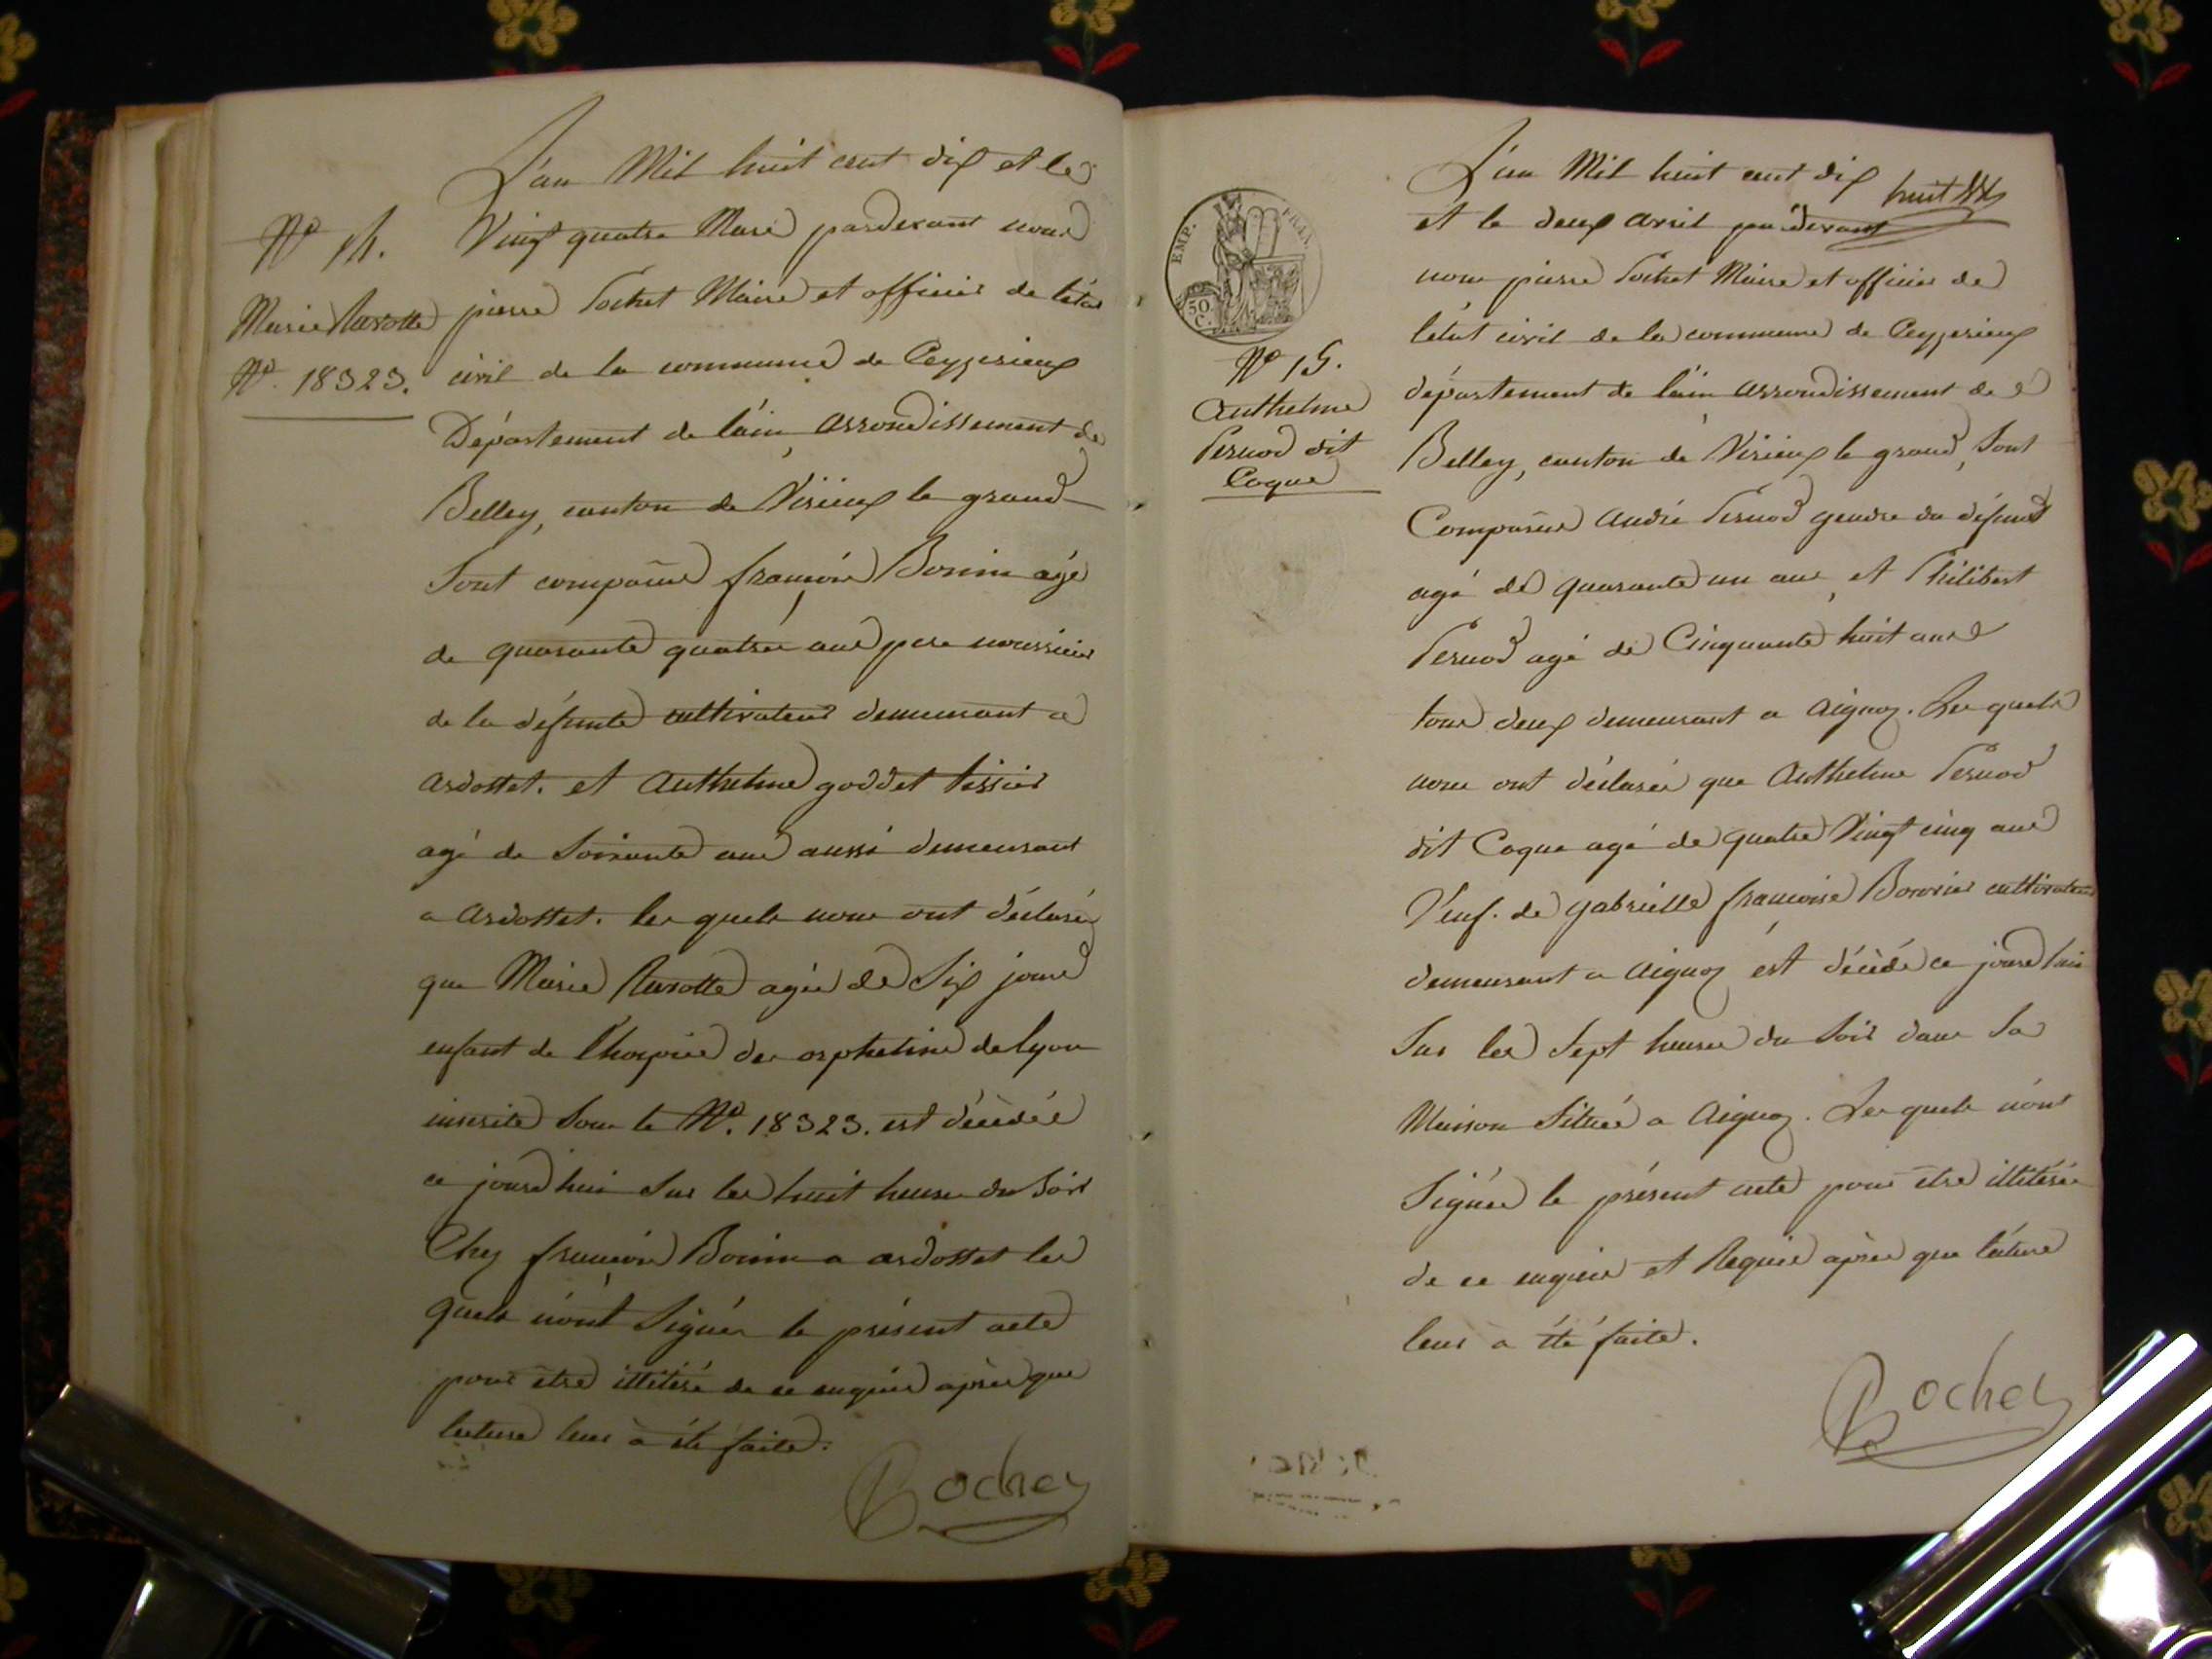 L'an Mil huit cent dix et le
Vingt quatre Mars pardevant nous
N° 14.
pierre Pochet Maire et officier de l'état
Marie Marotte
civil de la commune de Ceyzerieux
N°. 18323.
Département de l'ain, arrondissement de
Belley, canton de Virieux le grand
Sont comparus françois Bonin agé
de quarante quatre ans pere nourricier
de la défunte cultivateur demeurant a
ardosset. et Anthelme goddet tissier
agé de Soixante ans aussi demeurant
a ardosset. les quels nous ont déclarés
que Marie agée de Six jours
enfant de l'hospice des orphelins de lyon
inscrite Sous le N°. 18323. est décédée
ce jourd'hui sur les huit heures du Soir
Chez françois Bonin a ardosset les
quels n'ont Signés le présent acte
pour etre illitéré de ce enquis après que
lecture leur à été faite.
Rochet
L'an Mil huit cent dix huit
et le deux avril pardevant
nous pierre Pochet Maire et officier de
l'état civil de la commune de Ceyzerieux
département de l'ain arrondissement de
Belley, canton de Virieux le grand, Sont
Comparus André Pernod gendre du défunt
agé de quarante un ans, et Philibert
Pernod agé de Cinquante huit ans
tous deux demeurant a Aignoz. Les quels
nous ont déclarés que Anthelme Pernod
dit Coque agé de quatre Vingt cinq ans
Veuf. de gabrielle francoise cultivateur
demeurant a Aignoz est décédé ce jourd'hui
Sur les Sept heures du Soir dans Sa
Maison Située a Aignoz. Les quels n'ont
Signés le présent acte pour être illitérés
de ce enquis et Requis après que lécture
leur à été faite.
Rochet
EMP. FRAN.
50 C.
N° 15.
Anthelme
Pernod dit
Coque